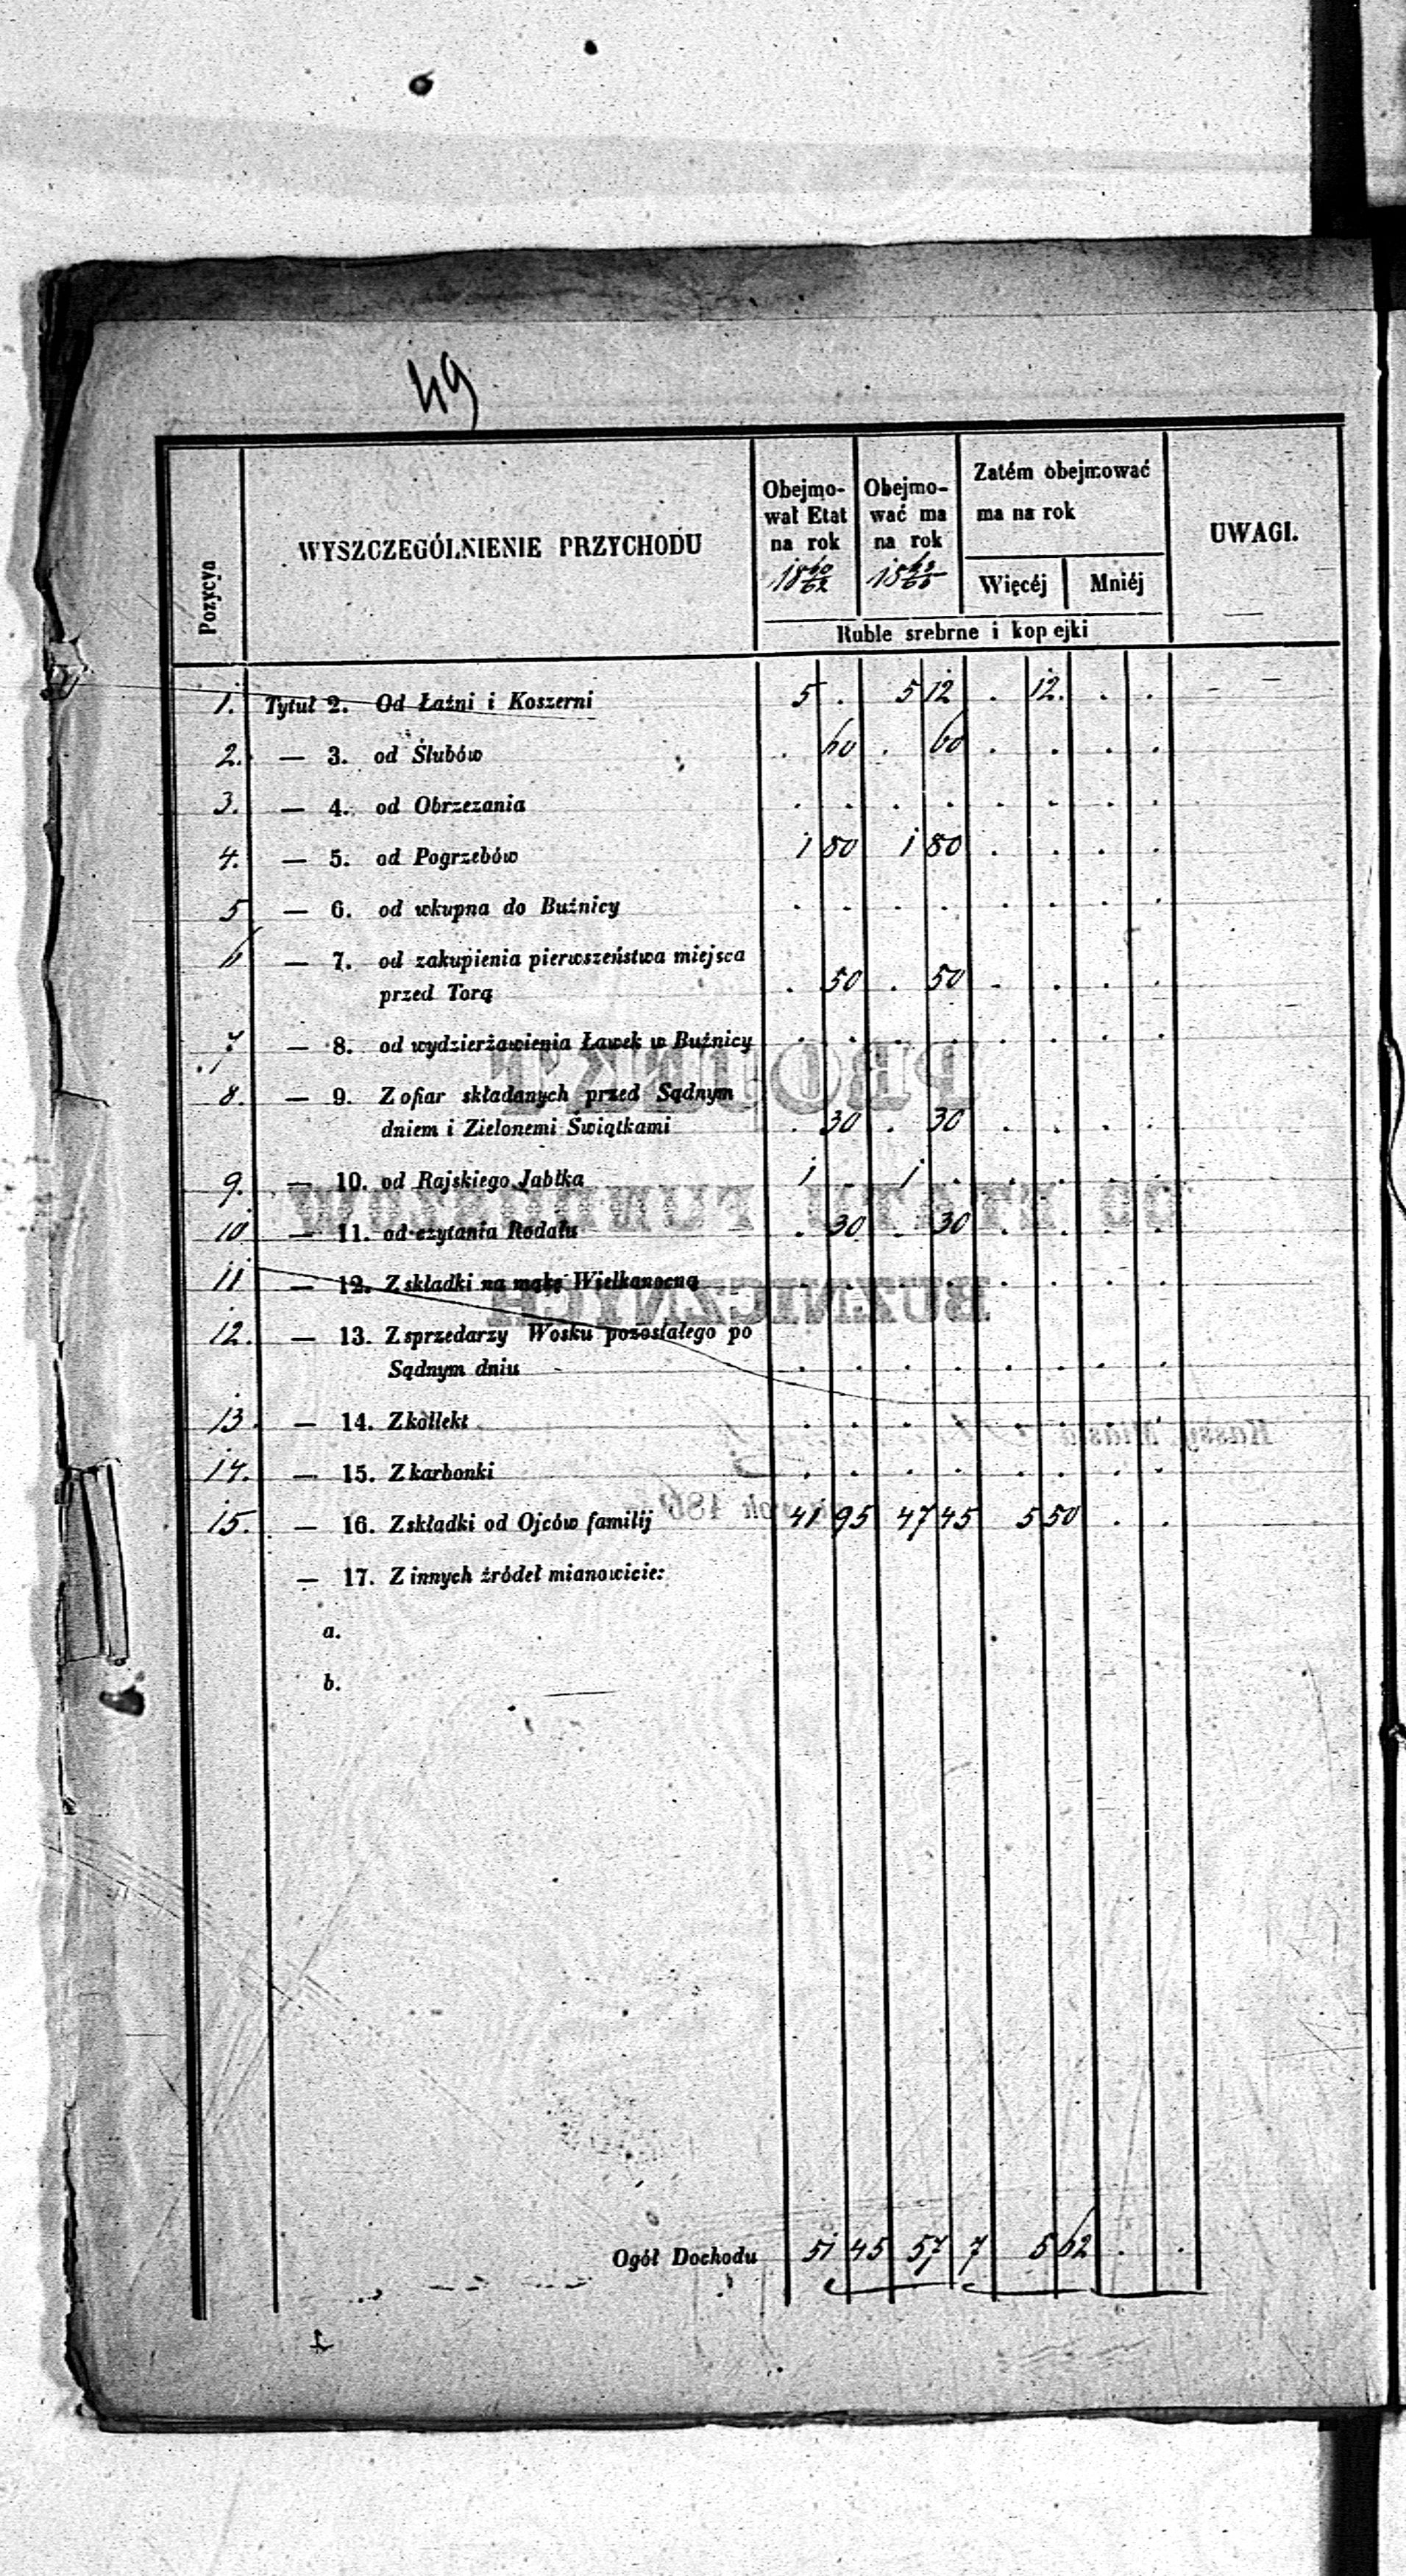 49
Pozycya
WYSZCZEGÓLNIENIE PRZYCHODU
Obejmo-
wał Etat
na rok
18 60/62
Obejmo-
wać ma
na rok
Zatém obejmować
ma na rok
Więcéj Mniéj
UWAGI.
Ruble srebrne i kopejki
1. Tytuł 2. Od Łaźni i Koszerni 5 . 5 12 . 12. . .
2. — 3. od Ślubów . 60 . 60 . . . .
3. — 4. od Obrzezania . . . . . . . .
4. — 5. od Pogrzebów 1 80 1 80 . . . .
5 — 6. od wkupna do Buźnicy . . . . . . . .
6 — 7. od zakupienia pierwszeństwa miejsca
przed Torą . 50 . 50 . . . .
7 — 8. od wydzierżawienia Ławek w Buźnicy . . . . . . . .
8. — 9. Z ofiar składanych przed Sądnym
dniem i Zielonemi Świątkami . 30 . 30 . . . .
9. — 10. od Rajskiego Jabłka 1 . 1 . . . . .
10 — 11. od czytania Rodału . 30 . 30 . . . .
11 — 12. Z składki na mąkę Wielkanocną . . . . . . . .
12. — 13. Z sprzedarzy Wosku pozostałego po
Sądnym dniu . . . . . . . .
13. — 14. Z kollekt . . . . . . . .
14. — 15. Z karbonki . . . . . . . .
15. — 16. Z składki od Ojców familij 41 95 47 45 5 50 . .
— 17. Z innych źródeł mianowicie:
a.
b.
Ogół Dochodu 51 45 57 7 5 62 . .